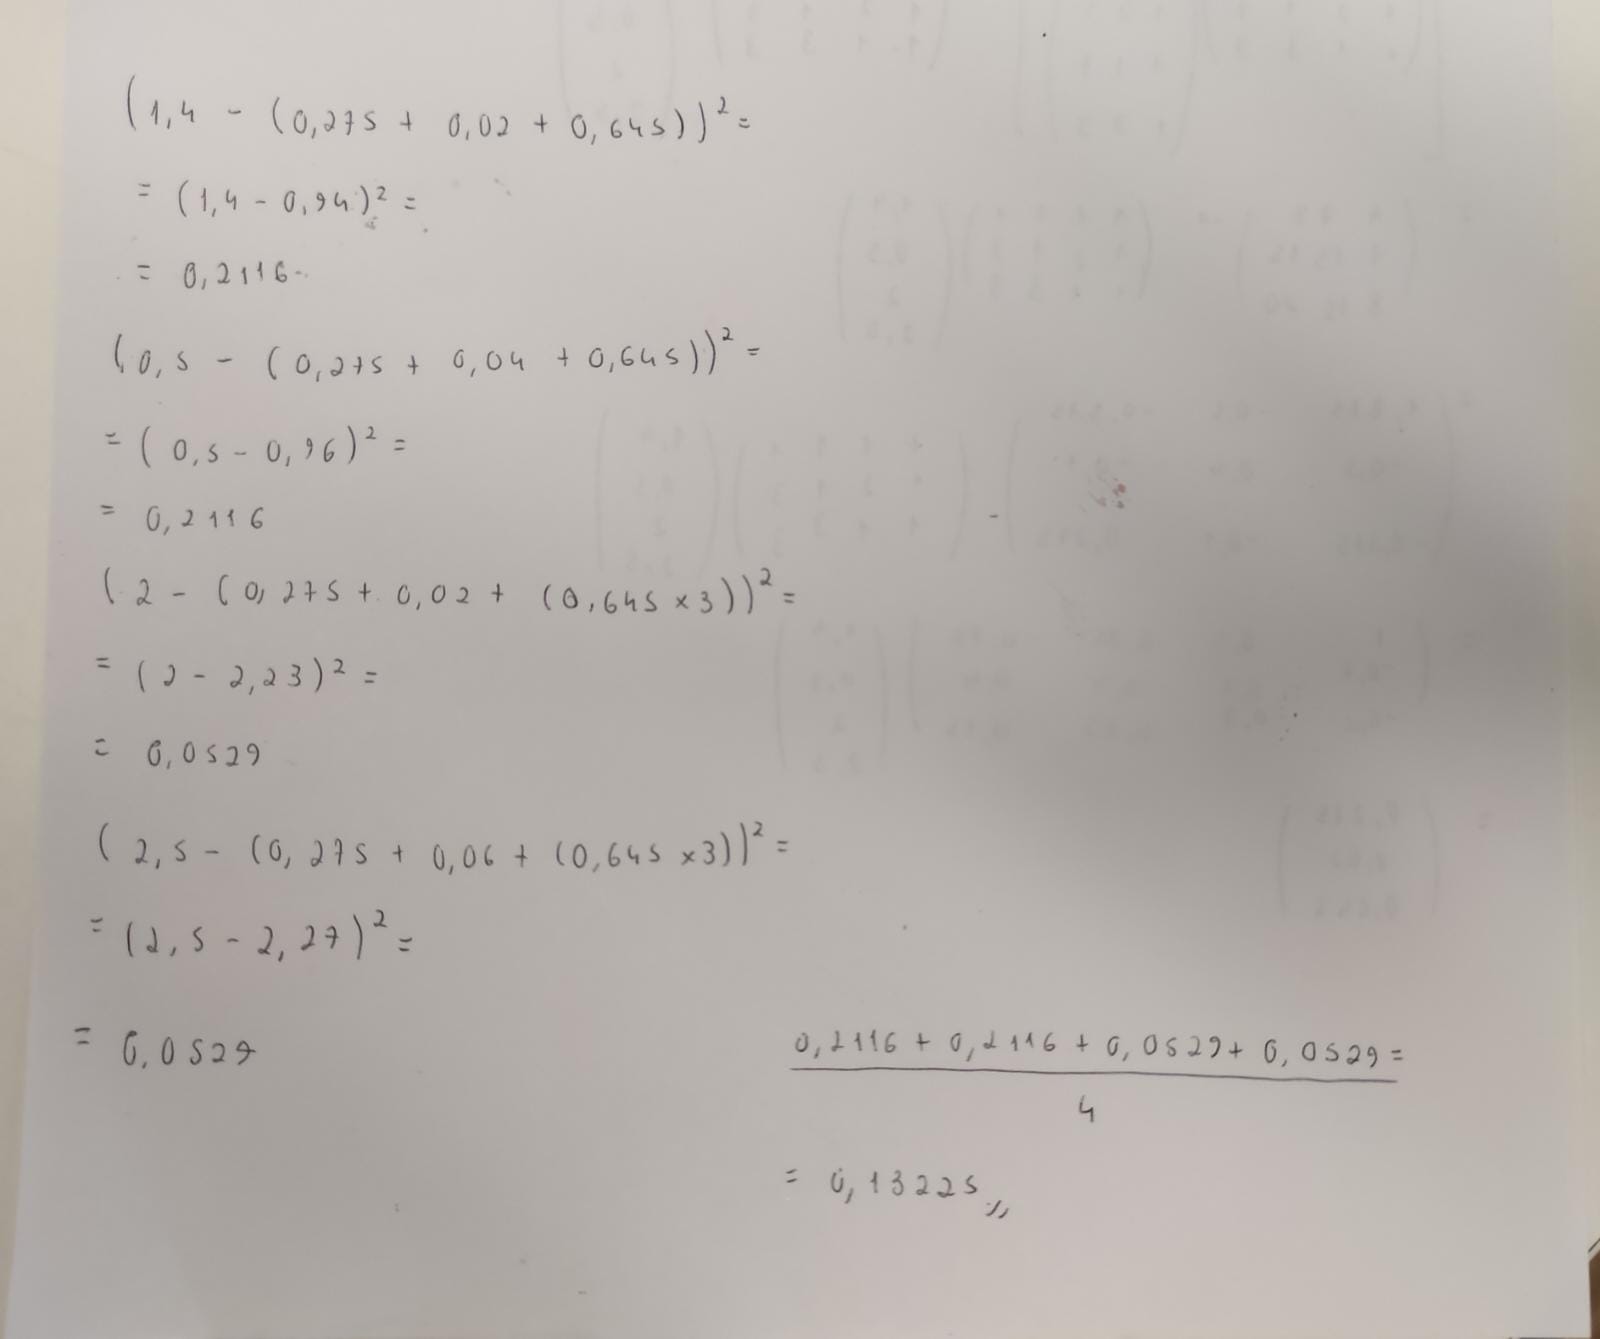 (1,4 - (0,275 + 0,02 + 0,645))² =
= (1,4 - 0,94)² =
= 0,2116
(0,5 - (0,275 + 0,04 + 0,645))² =
= (0,5 - 0,96)² =
= 0,2116
(2 - (0,275 + 0,02 + (0,645 × 3))² =
= (2 - 2,23)² =
= 0,0529
(2,5 - (0,275 + 0,06 + (0,645 × 3))² =
= (2,5 - 2,27)² =
= 0,0529
0,2116 + 0,2116 + 0,0529 + 0,0529 =
4
= 0,13225